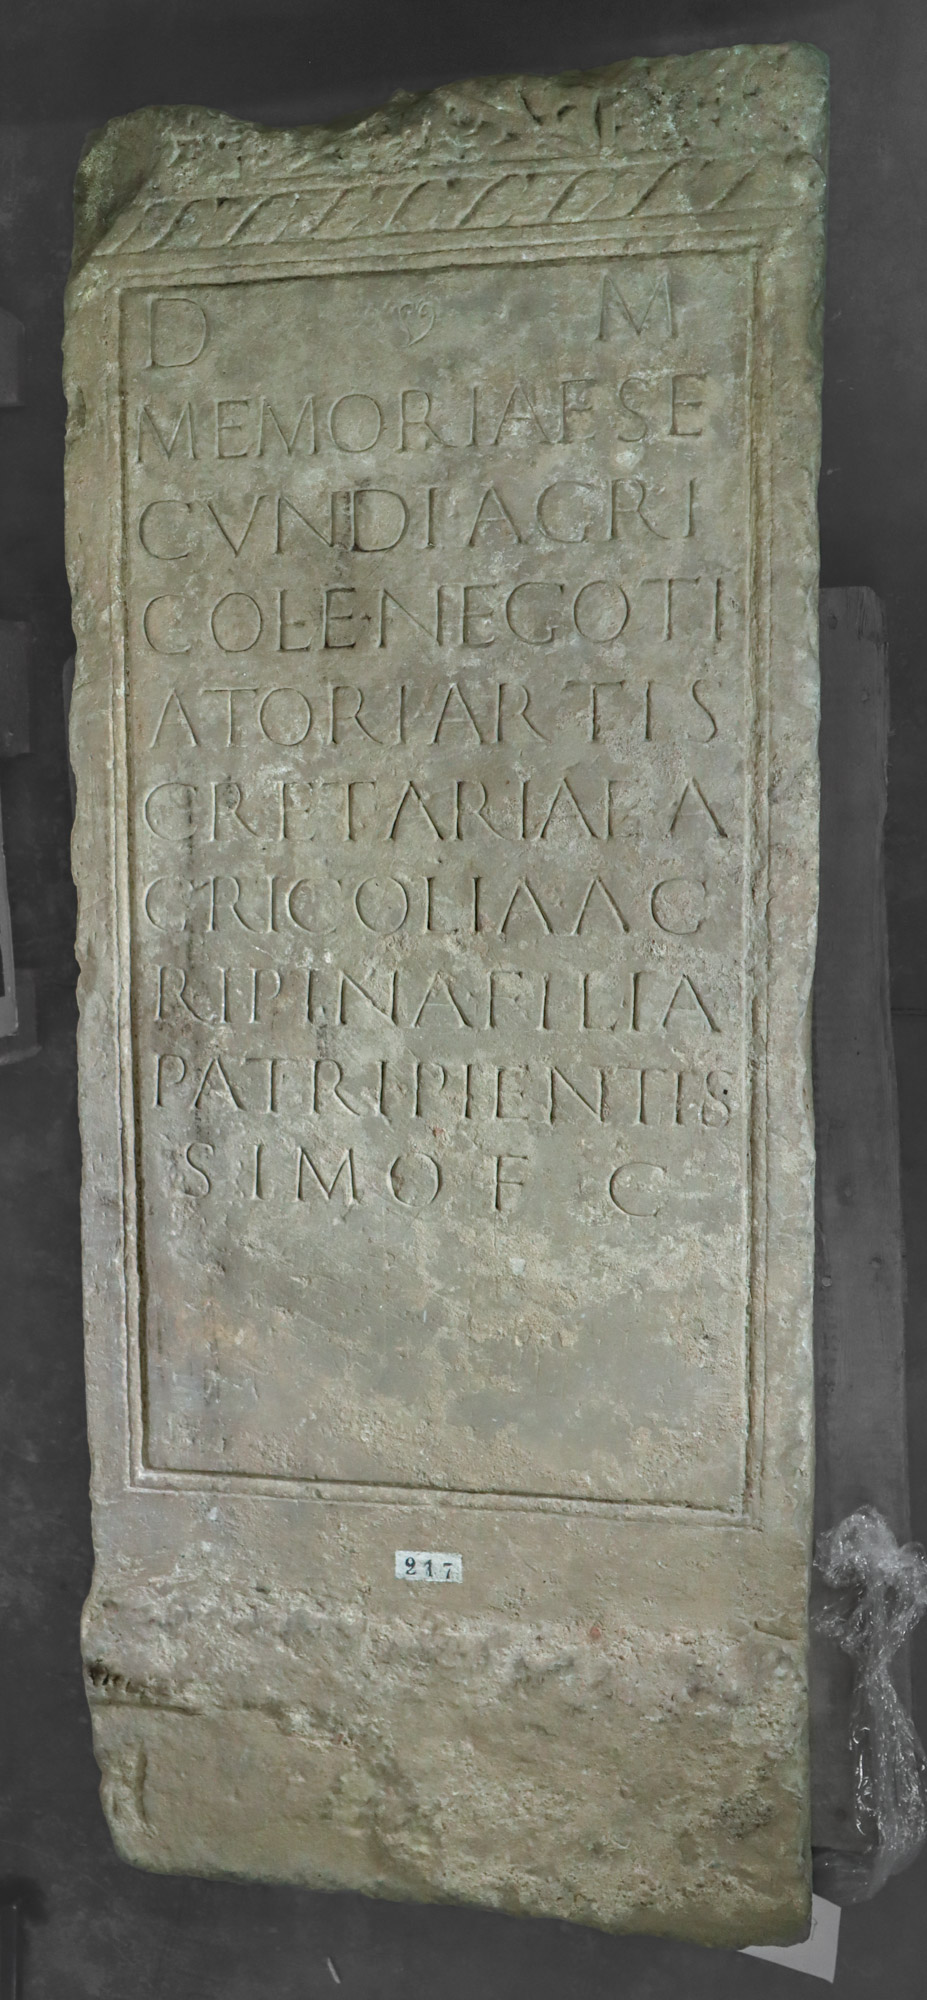 D M
MEMORIAE SE
CVNDI AGRI
COLE·NEGOTI
ATORI ARTIS
CRETARIAE A
GRICOLIA AG
RIPINA·FILIA
PATRI PIENTIS
SIMO F C
217